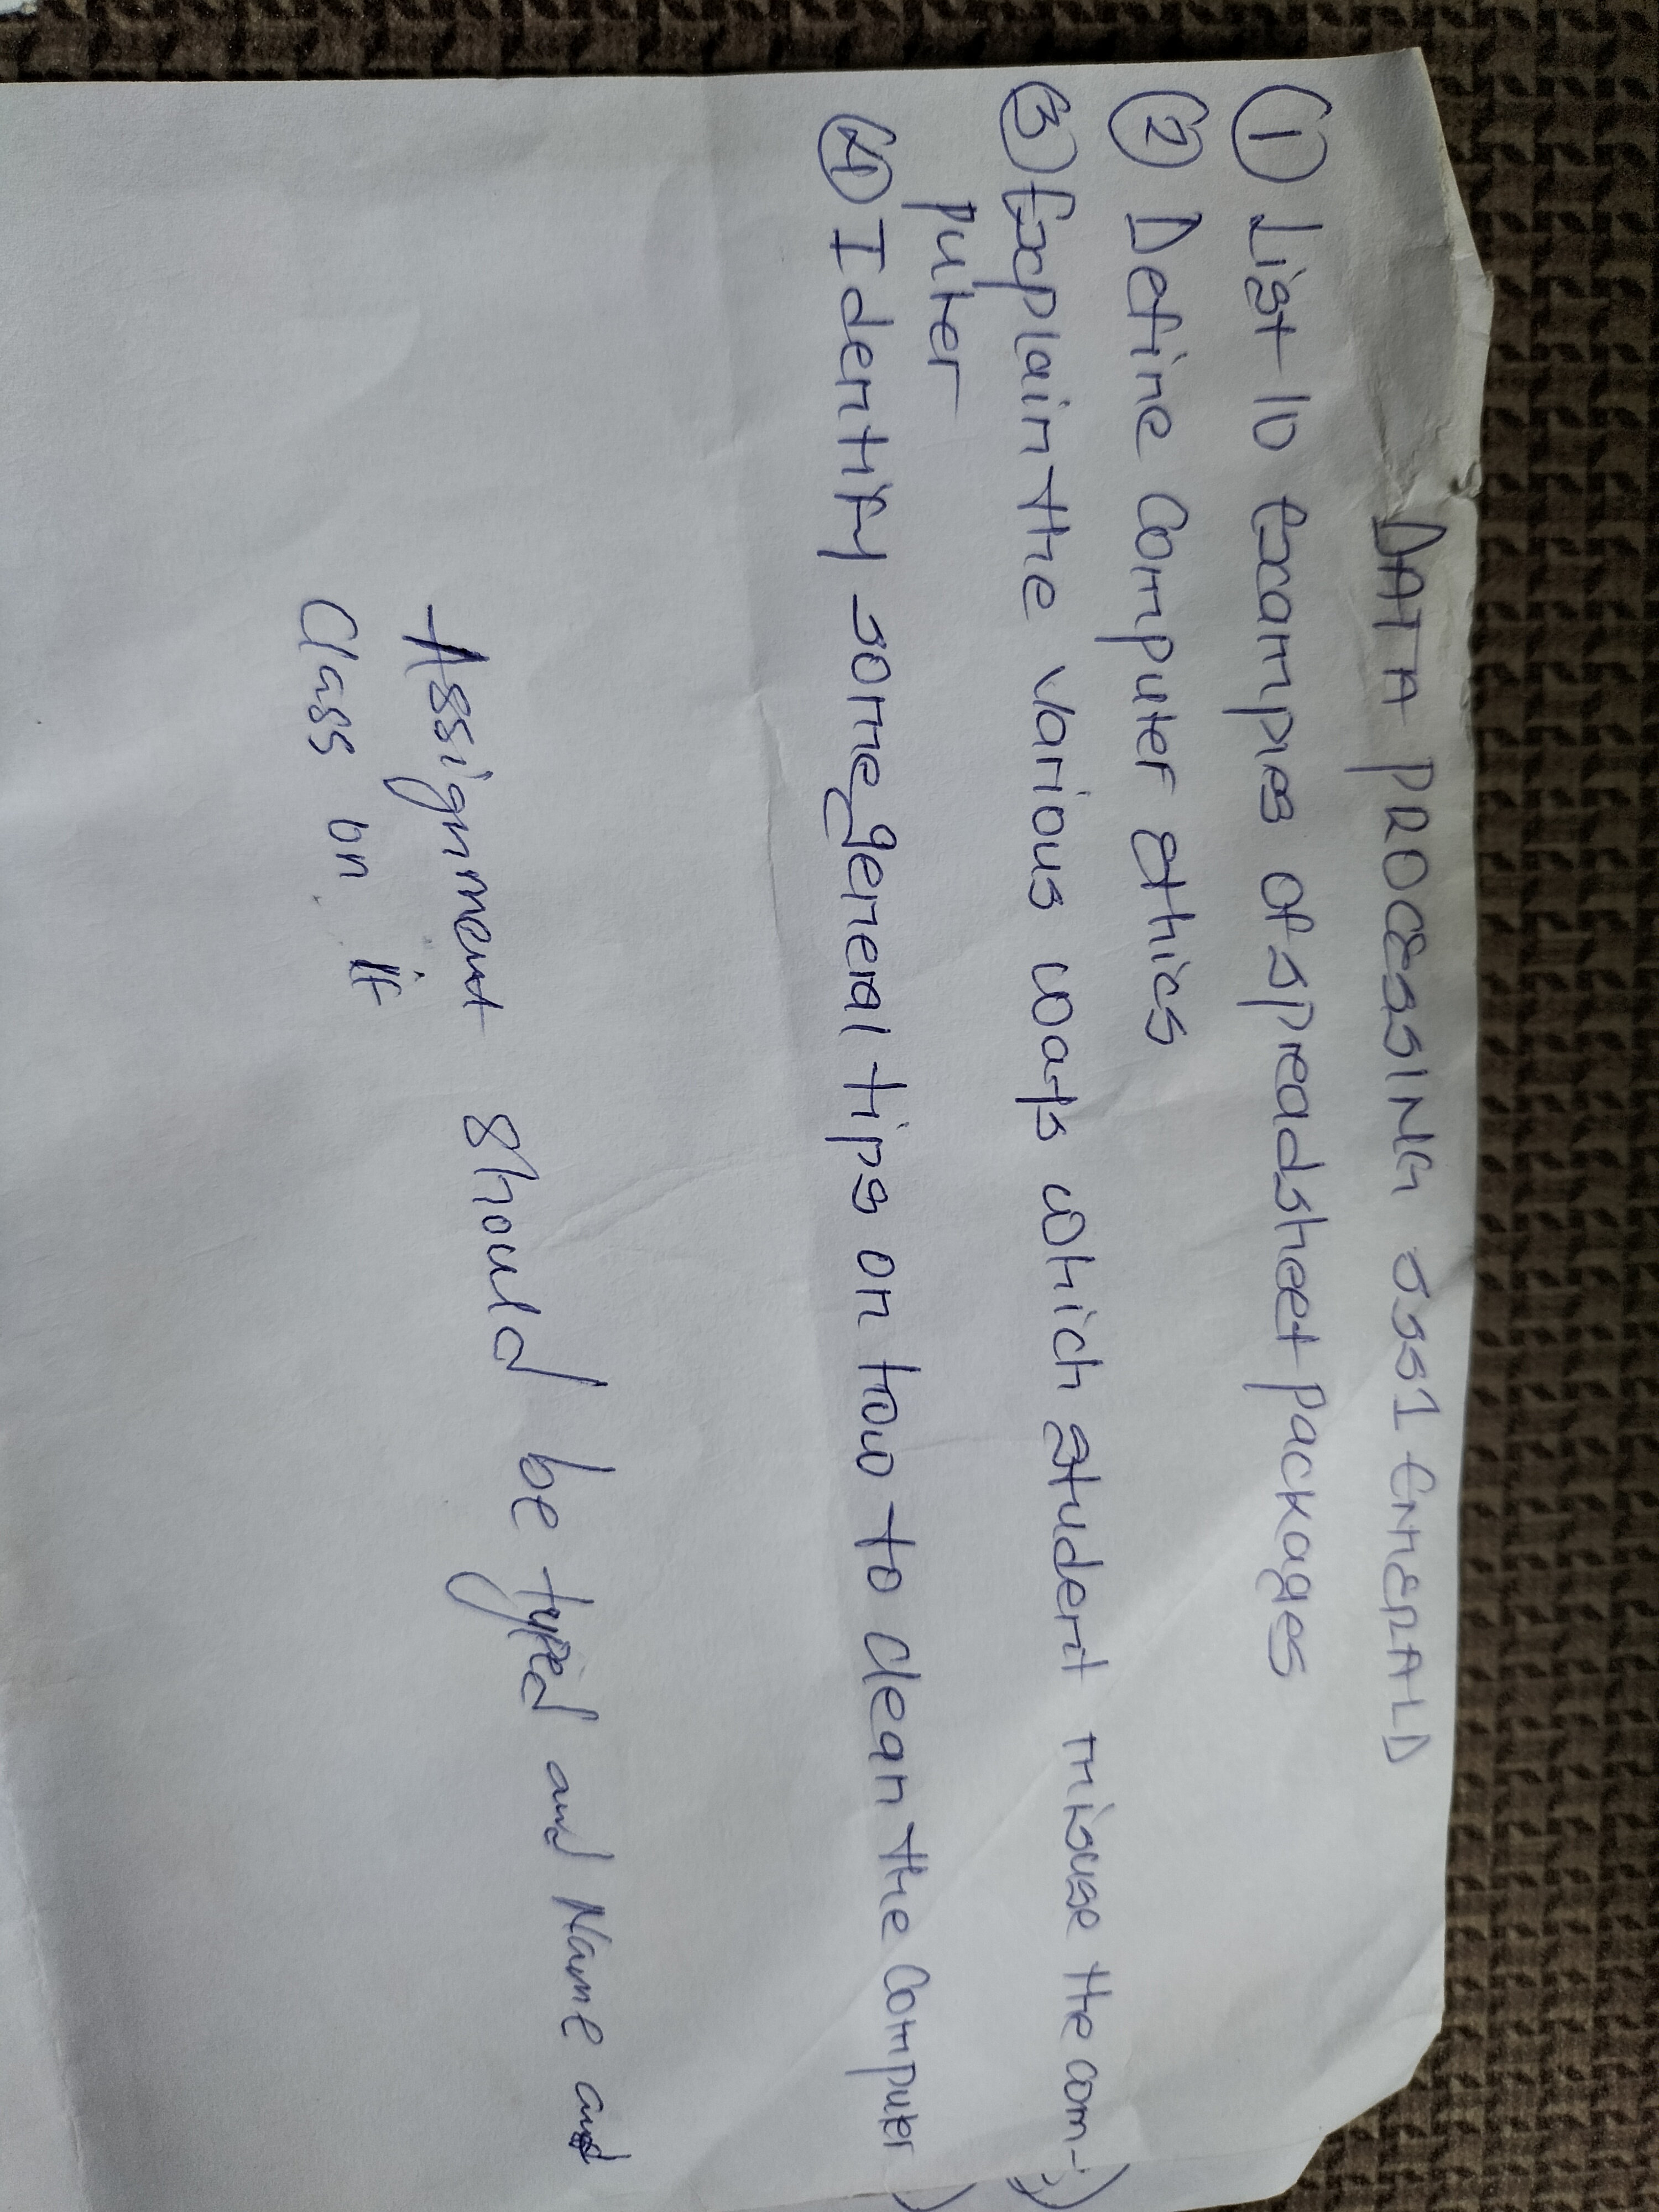 DATA PROCESSING SSS1 EMERALD
① List 10 Examples of spreadsheet packages
② Define Computer Ethics
③ Explain the various ways which student misuse the com-
puter
④ Identify some general tips on how to clean the computer
Assignment should be typed and Name and
Class on it